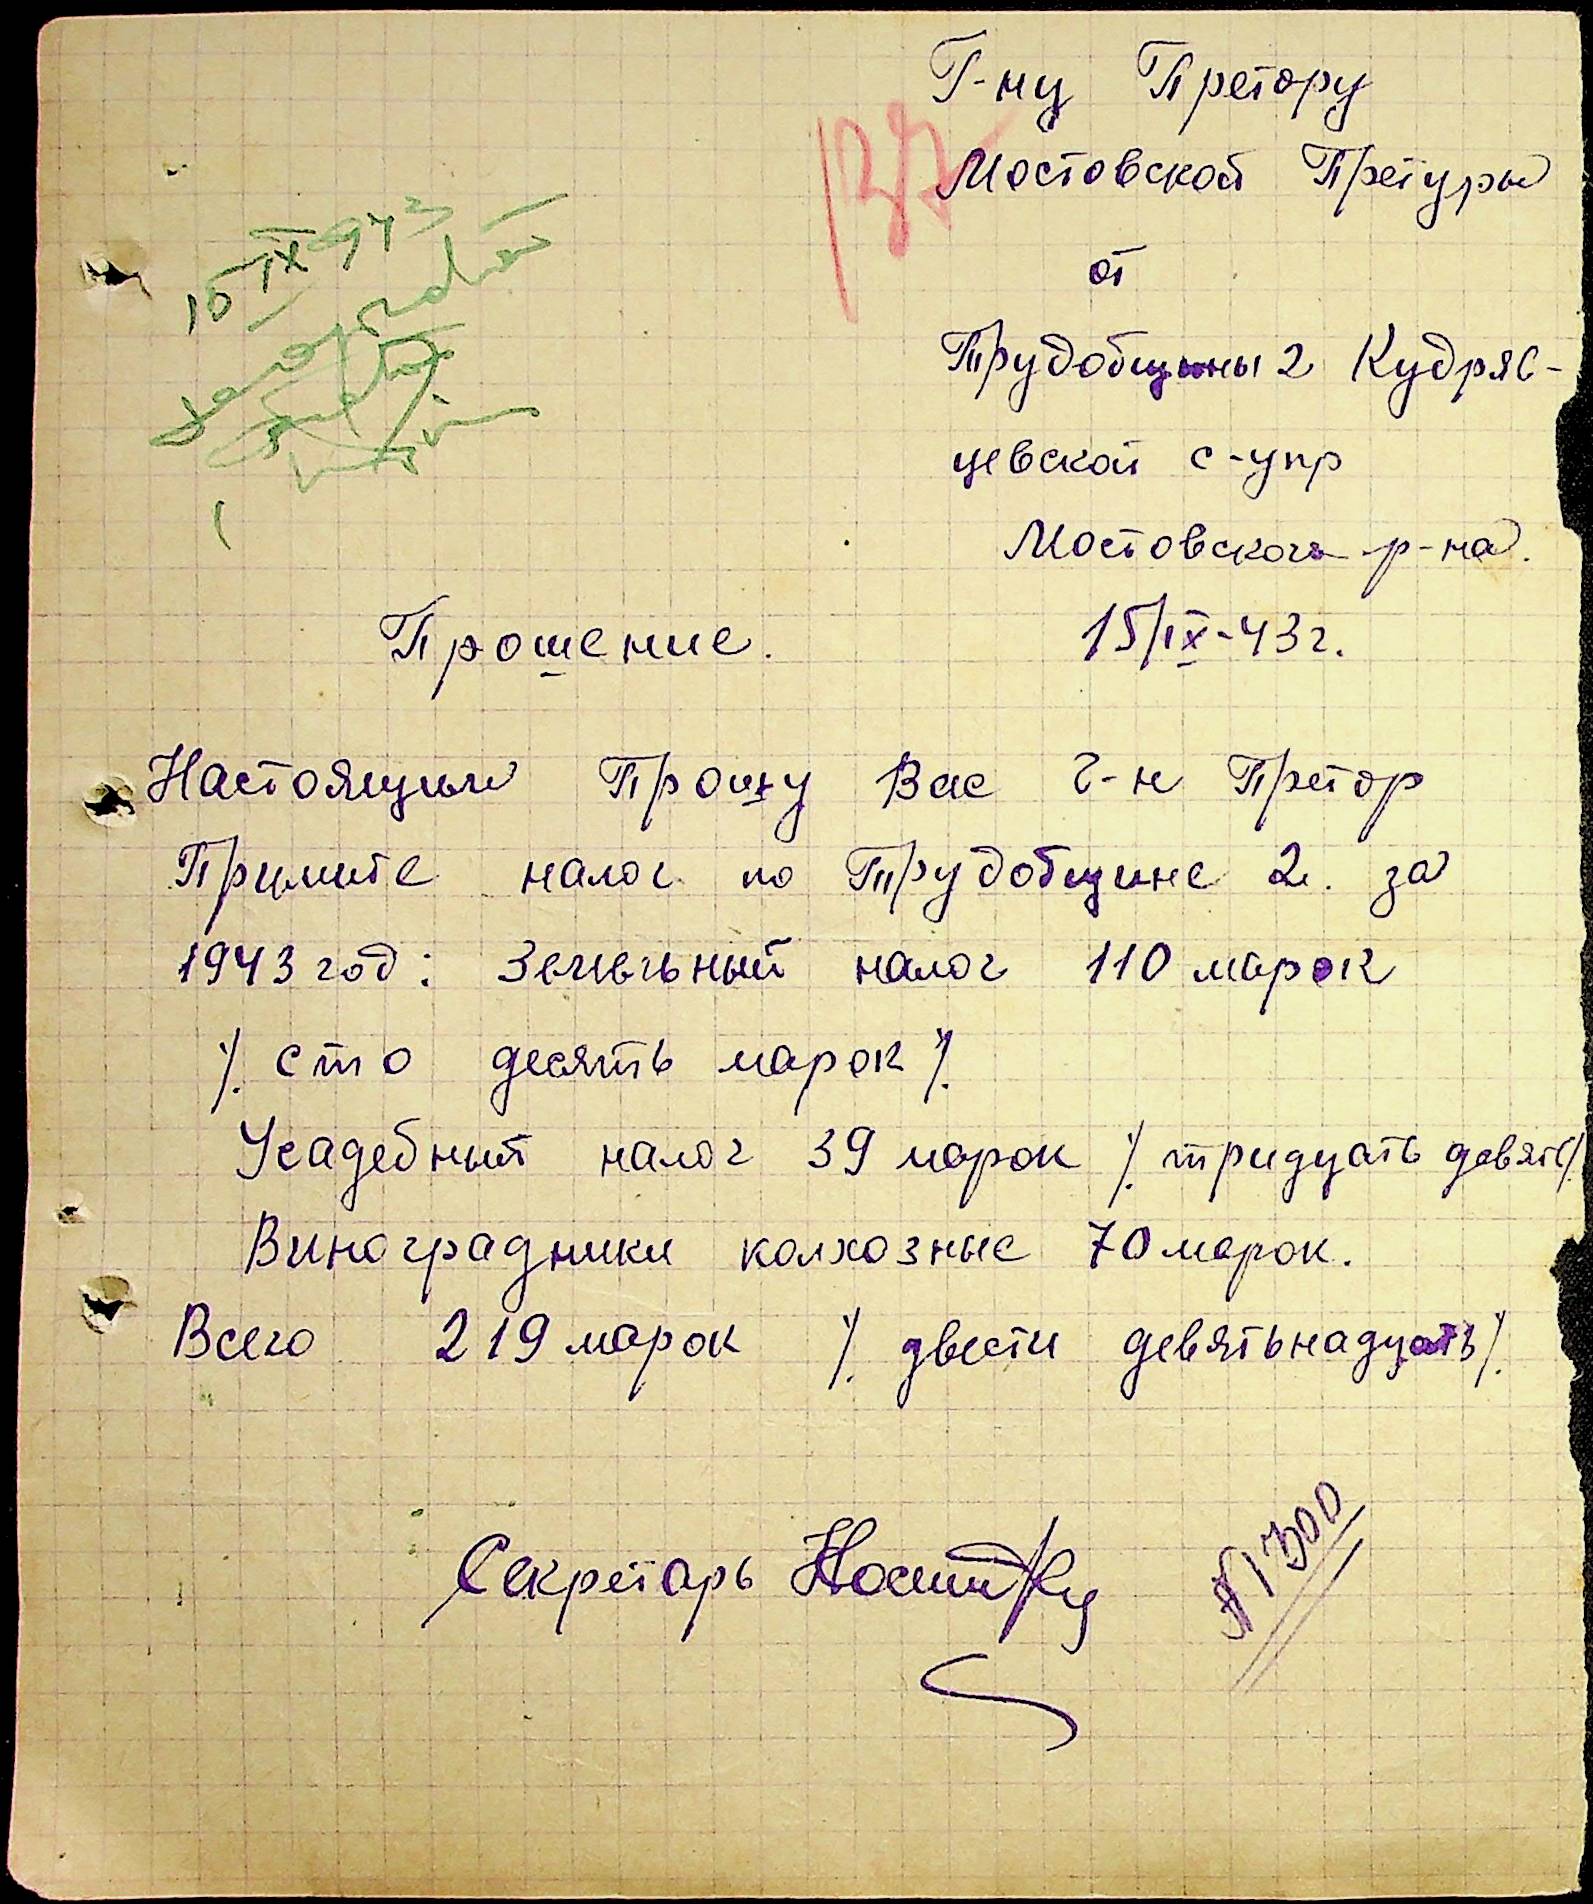 Г-ну Претору
Мостовской Претуры
от
Трудобщины 2 Кудряв-
цевской с-упр
Мостовского р-на.
15/IX-43г.
15 IX 943
Прошение.
Настоящим Прошу Вас г-н Претор
Примите налог по Трудобщине 2. за
1943 год: Земельный налог 110 марок
/. сто десять марок /.
Усадебный налог 39 марок /. тридцать девять/.
Виноградники колхозные 70 марок.
Всего 219 марок /. двести девятьнадцать/.
Секретарь